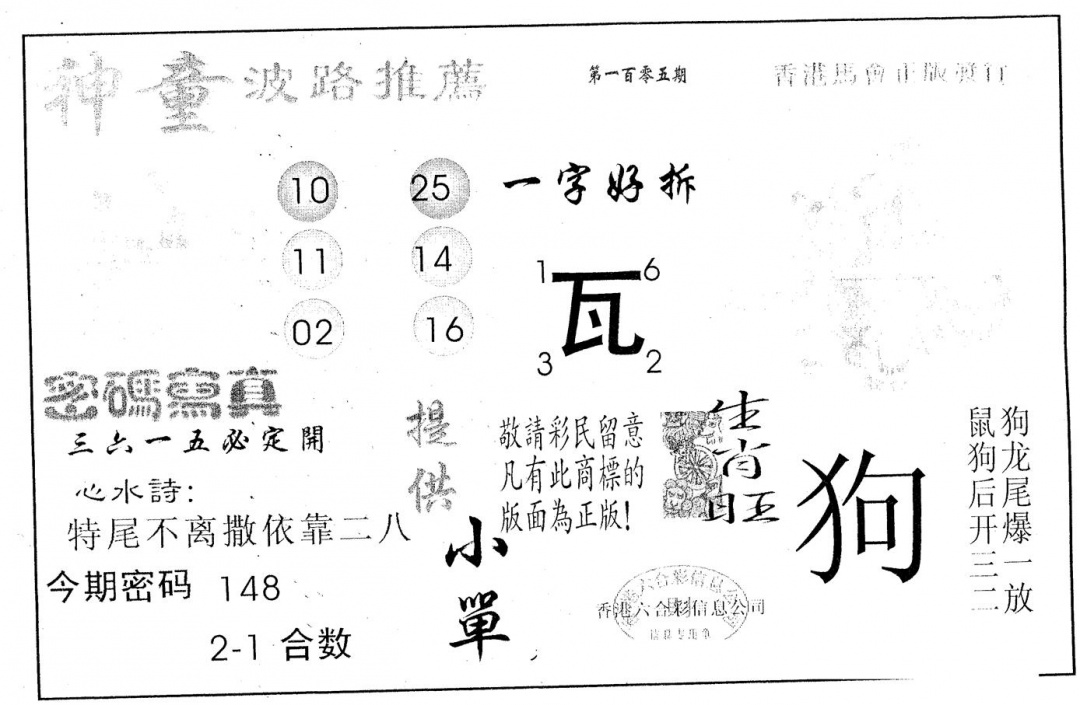 神童波路推薦
第一百零五期
香港馬會正版發行
10 25
11 14
02 16
一字好拆
1 6
瓦
3 2
密碼寫真
三六一五必定開
心水詩:
特尾不离撒依靠二八
今期密码 148
2-1 合数
提供
小單
敬請彩民留意
凡有此商標的
版面為正版!
生肖旺
狗
狗龙尾爆一放
鼠狗后开三二
香港六合彩信息公司